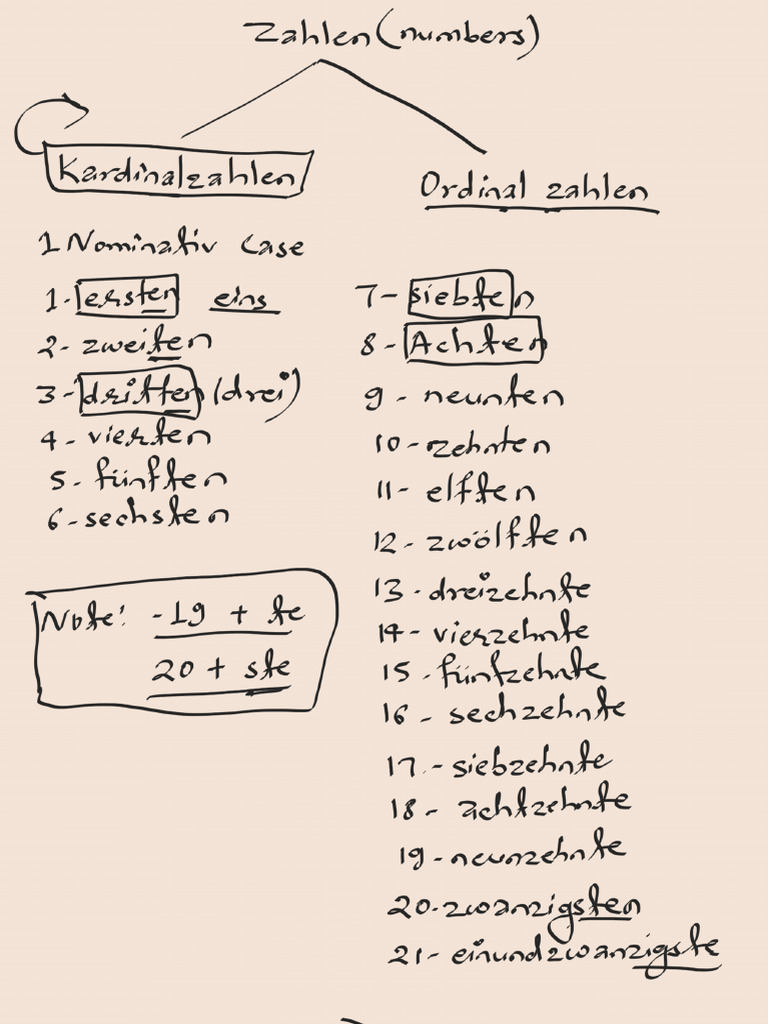 Zahlen (numbers)
Kardinalzahlen
Ordinal zahlen
1 Nominativ Case
1- ersten eins
2- zweiten
3- dritten (drei)
4- vierten
5- fünften
6- sechsten
Note: -19 + te
20 + ste
7- siebten
8- Achten
9- neunten
10- zehnten
11- elften
12- zwölften
13- dreizehnte
14- vierzehnte
15- fünfzehnte
16- sechzehnte
17- siebzehnte
18- achtzehnte
19- neunzehnte
20- zwanzigsten
21- einundzwanzigste